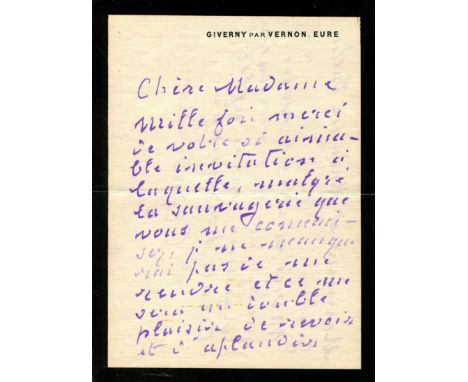 GIVERNY PAR VERNON. EURE
Chère Madame
mille fois merci
de votre si aima-
ble invitation à
laquelle, malgré
la sauvagerie que
vous me connais-
sez, je ne manque
rai pas de me
rendre et ce me
sera un double
plaisir de revoir
et d'aplaudir